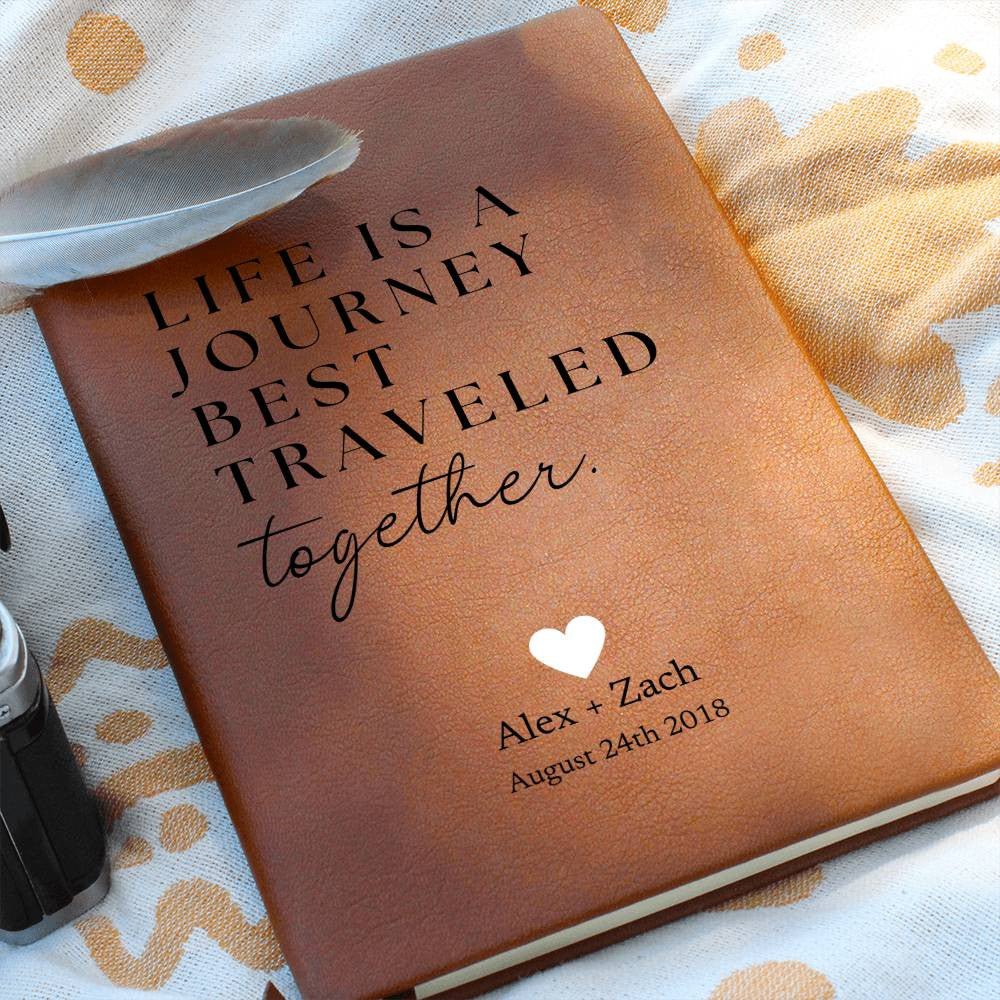 LIFE IS A
JOURNEY
BEST
TRAVELED
together.
Alex + Zach
August 24th 2018